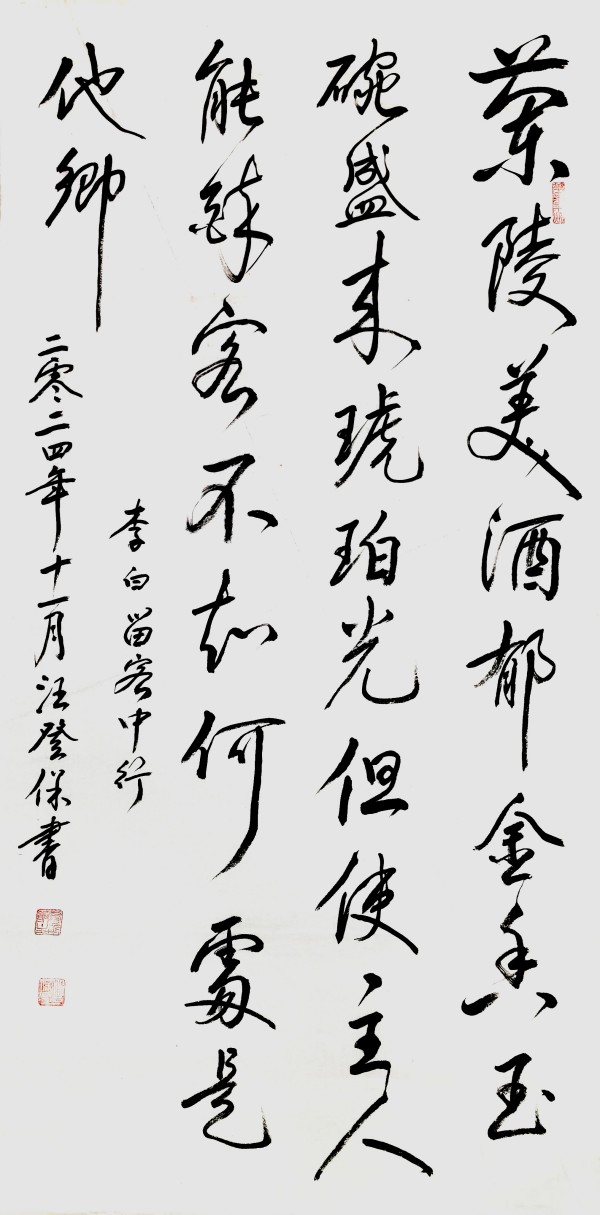 蘭陵美酒郁金香玉
碗盛来琥珀光但使主人
能醉客不知何處是
他鄉
李白留客中行
二零二四年十一月汪登保書